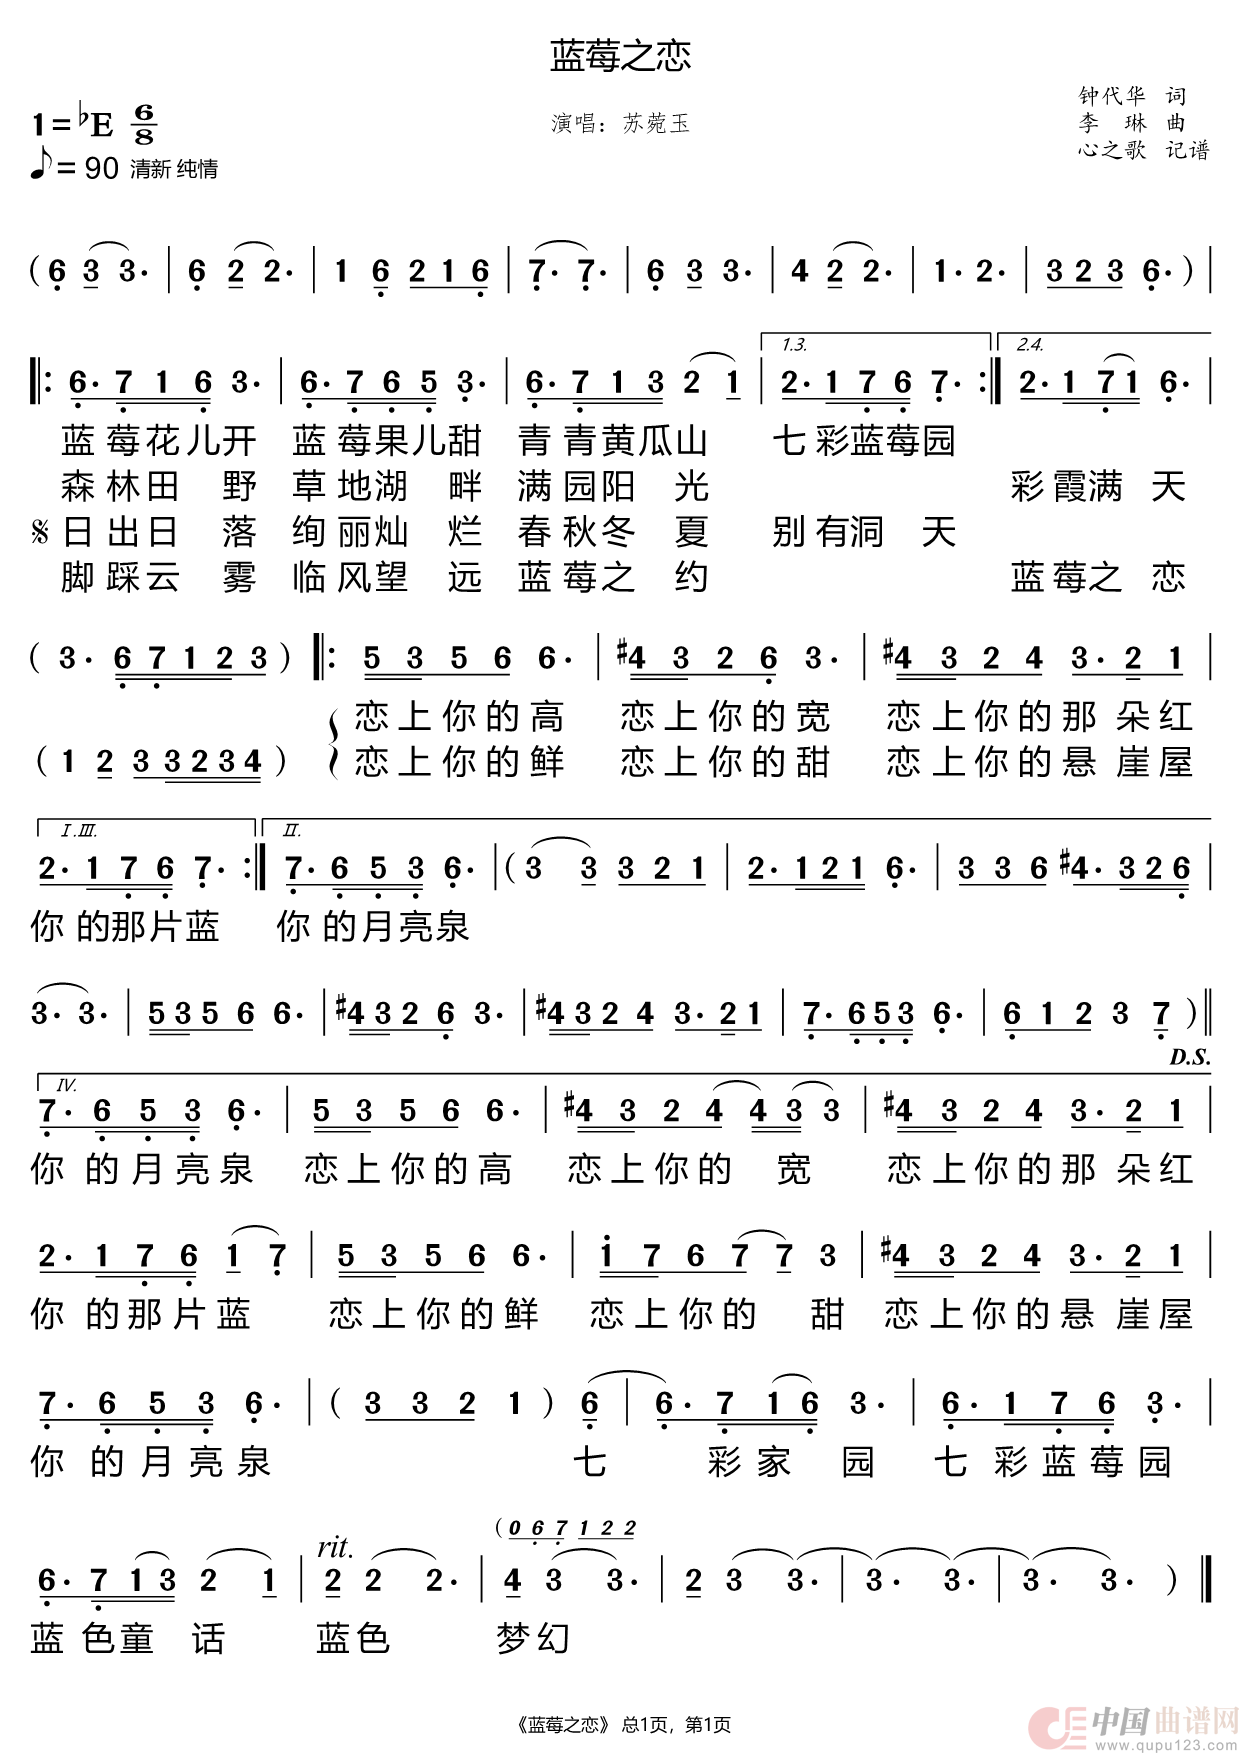 蓝莓之恋
1=♭E 6/8
演唱：苏菀玉
钟代华 词
李 琳 曲
心之歌 记谱
♪=90 清新 纯情
( 6 3 3· | 6 2 2· | 1 6 2 1 6 | 7· 7· | 6 3 3· | 4 2 2· | 1· 2· | 3 2 3 6· ) |
1.3. 2.4.
‖: 6· 7 1 6 3· | 6· 7 6 5 3· | 6· 7 1 3 2 1 | 2· 1 7 6 7· :‖ 2· 1 7 1 6· |
蓝莓花儿开 蓝莓果儿甜 青青黄瓜山 七彩蓝莓园
森林田 野 草地湖 畔 满园阳 光 彩霞满 天
𝄋日出日 落 绚丽灿 烂 春秋冬 夏 别有洞 天
脚踩云 雾 临风望 远 蓝莓之 约 蓝莓之 恋
( 3· 6 7 1 2 3 ) ‖: 5 3 5 6 6· | #4 3 2 6 3· | #4 3 2 4 3· 2 1 |
恋上你的高 恋上你的宽 恋上你的那朵红
( 1 2 3 3 2 3 4 ) 恋上你的鲜 恋上你的甜 恋上你的悬崖屋
I.III. II.
2· 1 7 6 7· :‖ 7· 6 5 3 6· | ( 3 3 3 2 1 | 2· 1 2 1 6· | 3 3 6 #4· 3 2 6 |
你的那片蓝 你的月亮泉
3· 3· | 5 3 5 6 6· | #4 3 2 6 3· | #4 3 2 4 3· 2 1 | 7· 6 5 3 6· | 6 1 2 3 7 ) ‖
D.S.
IV.
7· 6 5 3 6· | 5 3 5 6 6· | #4 3 2 4 4 3 3 | #4 3 2 4 3· 2 1 |
你的月亮泉 恋上你的高 恋上你的 宽 恋上你的那朵红
2· 1 7 6 1 7 | 5 3 5 6 6· | 1 7 6 7 7 3 | #4 3 2 4 3· 2 1 |
你的那片蓝 恋上你的鲜 恋上你的 甜 恋上你的悬崖屋
7· 6 5 3 6· | ( 3 3 2 1 ) 6 | 6· 7 1 6 3· | 6· 1 7 6 3· |
你的月亮泉 七 彩家 园 七彩蓝莓园
( 0 6 7 1 2 2
rit.
6· 7 1 3 2 1 | 2 2 2· | 4 3 3· | 2 3 3· | 3· 3· | 3· 3· ) ‖
蓝色童 话 蓝色 梦幻
《蓝莓之恋》 总1页，第1页
中国曲谱网
www.qupu123.com